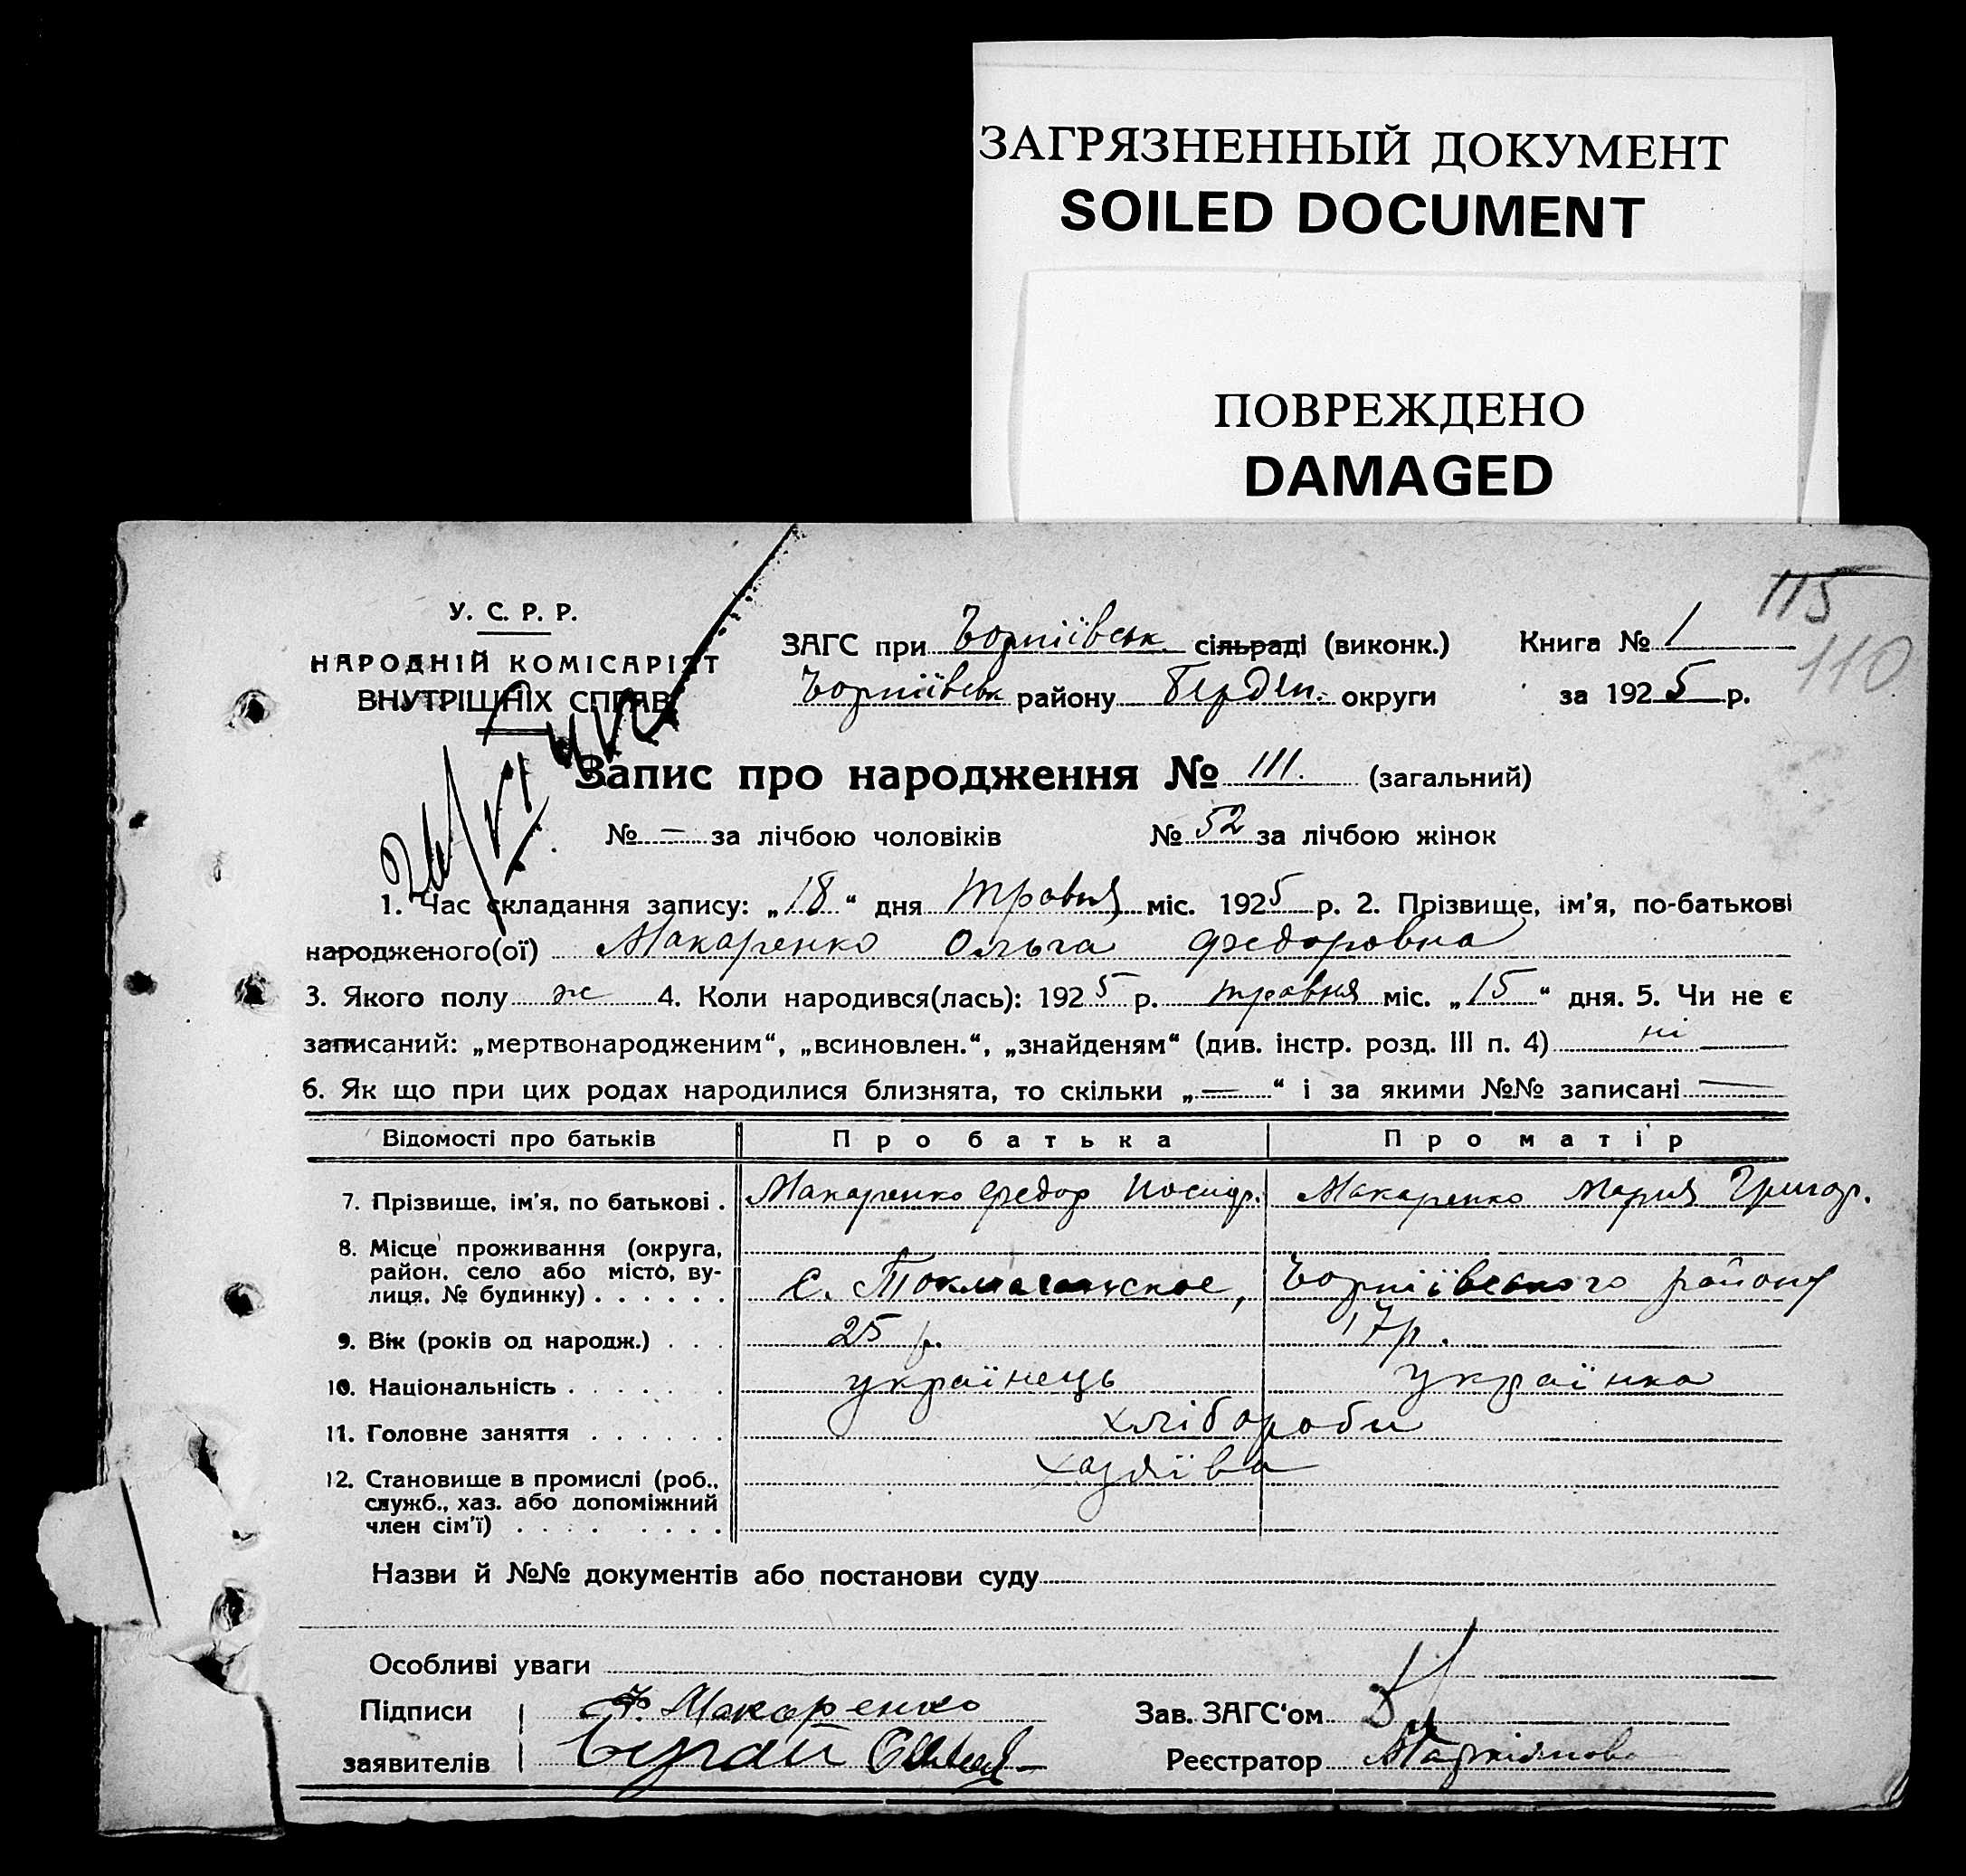 ЗАГРЯЗНЕННЫЙ ДОКУМЕНТ
SOILED DOCUMENT
ПОВРЕЖДЕНО
DAMAGED
115
110
У. С. Р. Р.
НАРОДНІЙ КОМІСАРІЯТ
ВНУТРІШНІХ СПРАВ
ЗАГС при сільраді (виконк.) Книга № 1
району Бердян. округи за 1925 р.
Запис про народження № 111. (загальний)
№ — за лічбою чоловіків № 52 за лічбою жінок
1. Час складання запису: „18“ дня травня міс. 1925 р. 2. Прізвище, ім'я, по-батькові
народженого(ої) Макаренко Ольга Федоровна
3. Якого полу ж 4. Коли народився(лась): 1925 р. травня міс. „15“ дня. 5. Чи не є
записаний: „мертвонародженим“, „всиновлен.“, „знайденям“ (див. інстр. розд. III п. 4) ні
6. Як що при цих родах народилися близнята, то скільки „—“ і за якими №№ записані —
Відомості про батьків Про батька Про матір
7. Прізвище, ім'я, по батькові . Макаренко Федор Макаренко Мария Григор.
8. Місце проживання (округа,
район, село або місто, ву-
лиця, № будинку) . . . . . . с. району
9. Вік (років од народж.) . . . 25 р. 17 р.
10. Національність . . . . . . українець українка
11. Головне заняття . . . . . . хлібороби
12. Становище в промислі (роб.,
служб., хаз. або допоміжний
член сім'ї) . . . . . . . . хазяїва
Назви й №№ документів або постанови суду
Особливі уваги
Підписи Ф. Макаренко Зав. ЗАГС‘ом
заявителів Реєстратор